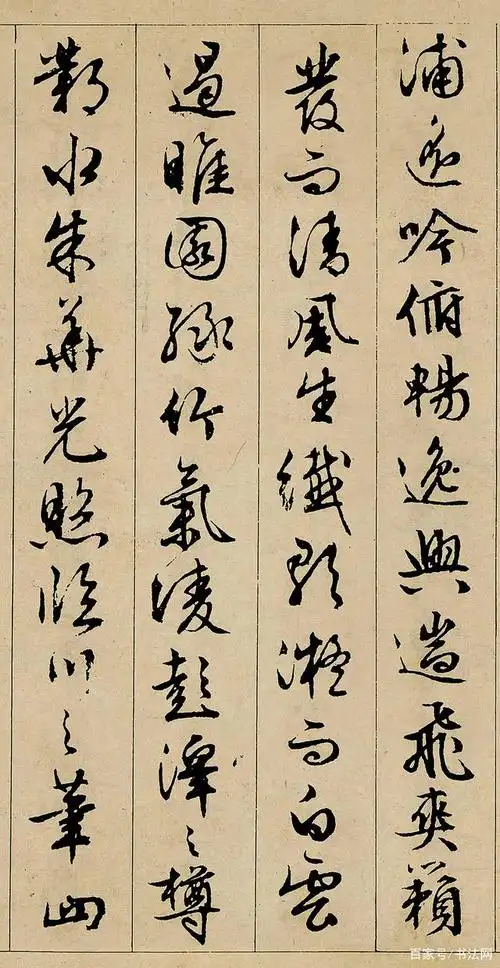 浦遥吟俯暢逸興遄飛爽籟
發而清風生纖歌凝而白雲
遏睢園緑竹氣淩彭澤之樽
鄴水朱華光照臨川之筆四
百家号/书法网